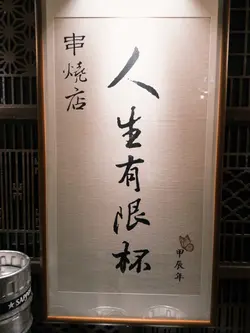 串燒店
人生有限杯
甲辰年
★ SAPP